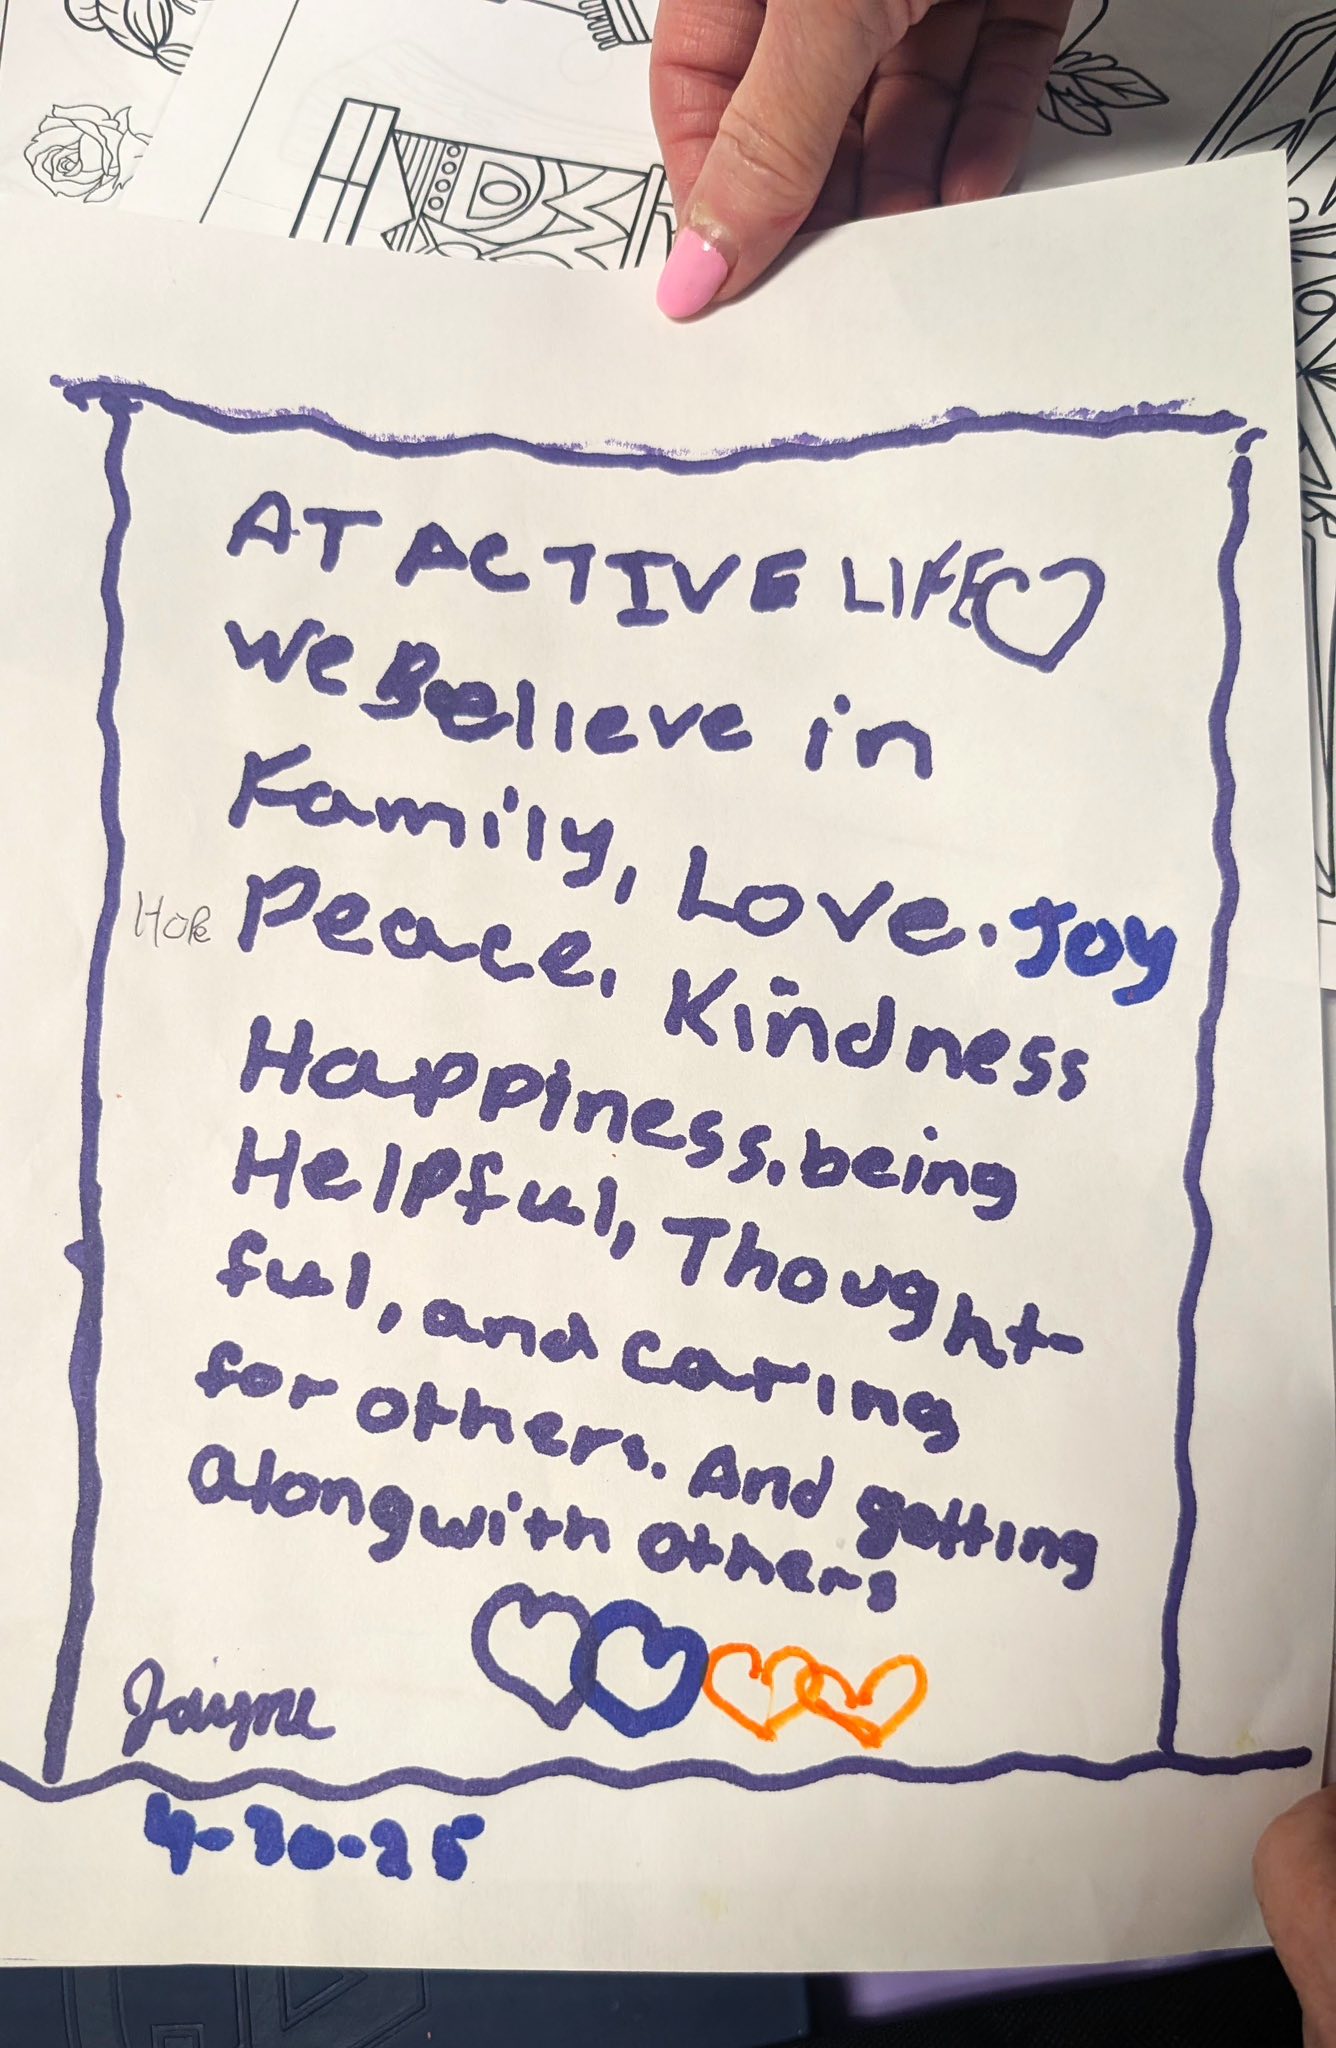 AT ACTIVE LIFE
We Believe in
Family, Love. Joy
Hope Peace, Kindness
Happiness. being
Helpful, Thought-
ful, and caring
for others. And getting
along with others
Jayne
4-30-25